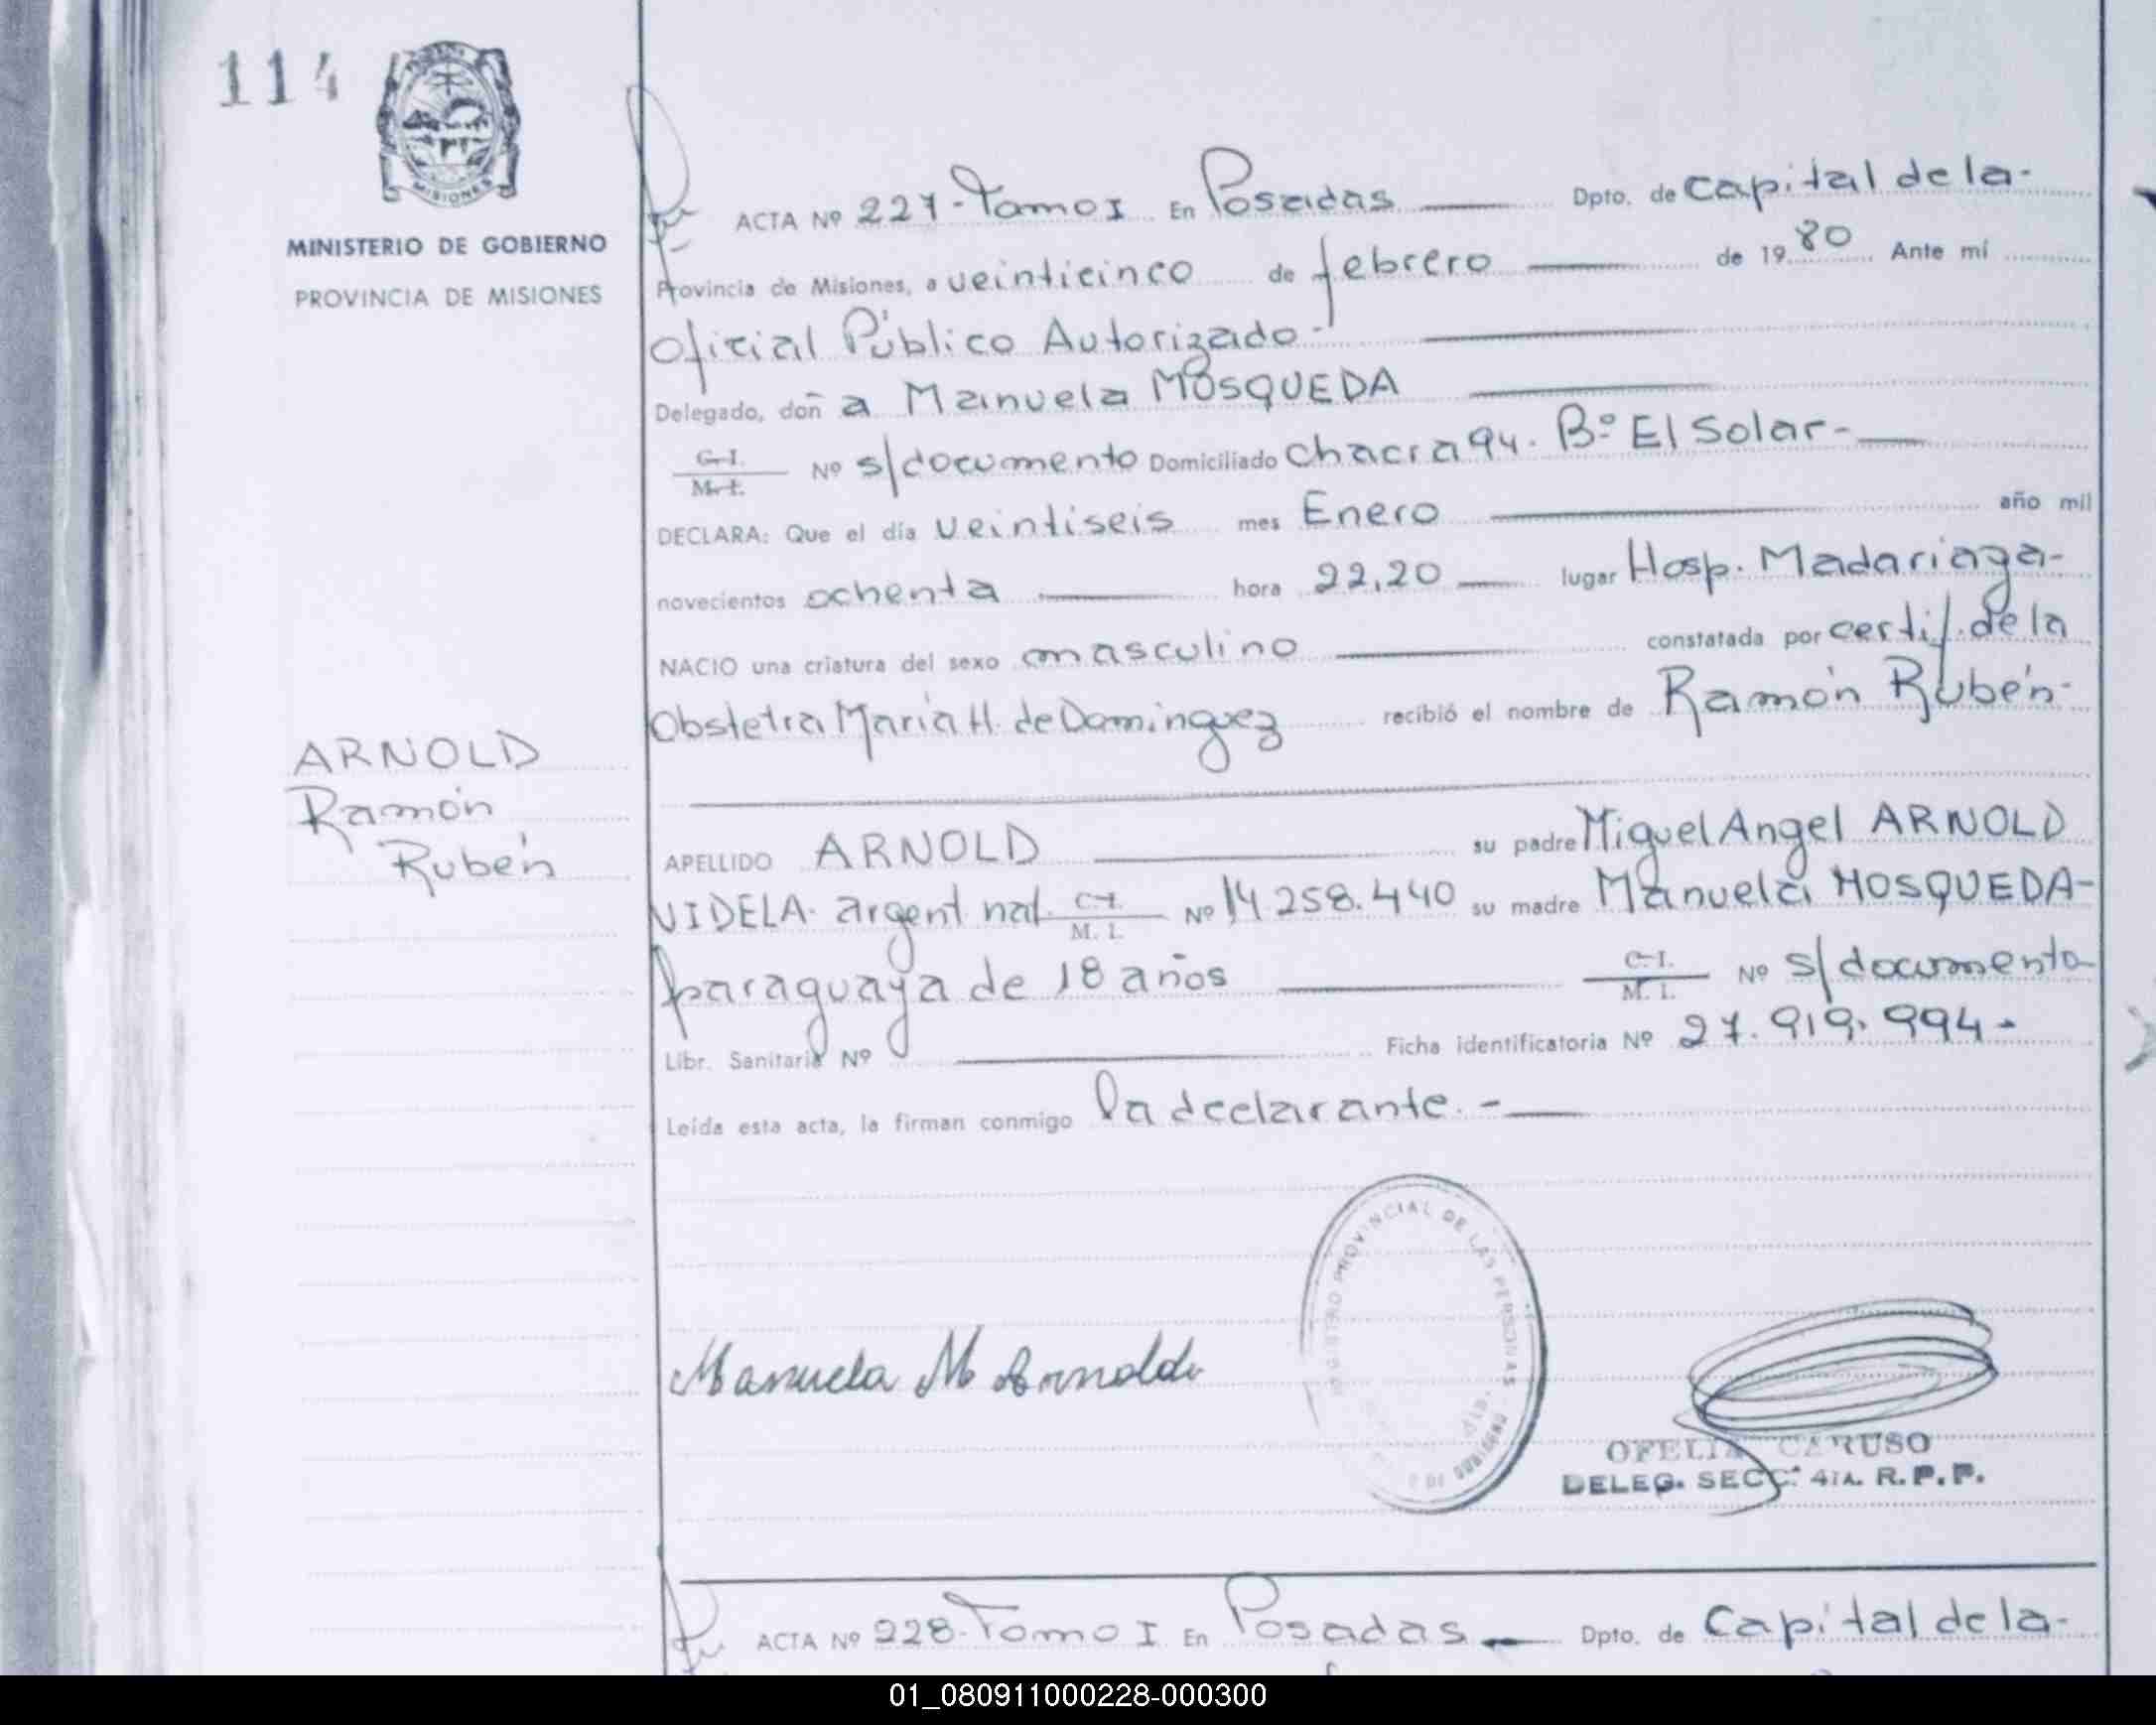 114
MISIONES
MINISTERIO DE GOBIERNO
PROVINCIA DE MISIONES
ACTA Nº 227-Tomo I En Posadas Dpto. de Capital de la-
Provincia de Misiones, a veinticinco de febrero de 1980 Ante mí
Oficial Público Autorizado-
Delegado, doña Manuela MOSQUEDA
C.I. M.I. Nº s/documento Domiciliado Chacra 94. Bº El Solar-
DECLARA: Que el día veintiseis mes Enero año mil
novecientos ochenta hora 22,20 lugar Hosp. Madariaga-
NACIO una criatura del sexo masculino constatada por certif. de la
Obstetra María H. de Domínguez recibió el nombre de Ramón Rubén-
ARNOLD
Ramón
Rubén
APELLIDO ARNOLD su padre Miguel Angel ARNOLD
VIDELA- argent nat. C.I. M.I. Nº 14258.440 su madre Manuela MOSQUEDA-
paraguaya de 18 años C.I. M.I. Nº s/documento
Libr. Sanitaria Nº Ficha identificatoria Nº 27.919.994-
Leída esta acta, la firman conmigo la declarante.-
PROVINCIAL DE LAS PERSONAS
Manuela M Arnold
OFELIA CARUSO
DELEG. SECC. 4ta. R.P.P.
ACTA Nº 228-Tomo I En Posadas Dpto. de Capital de la-
01_080911000228-000300